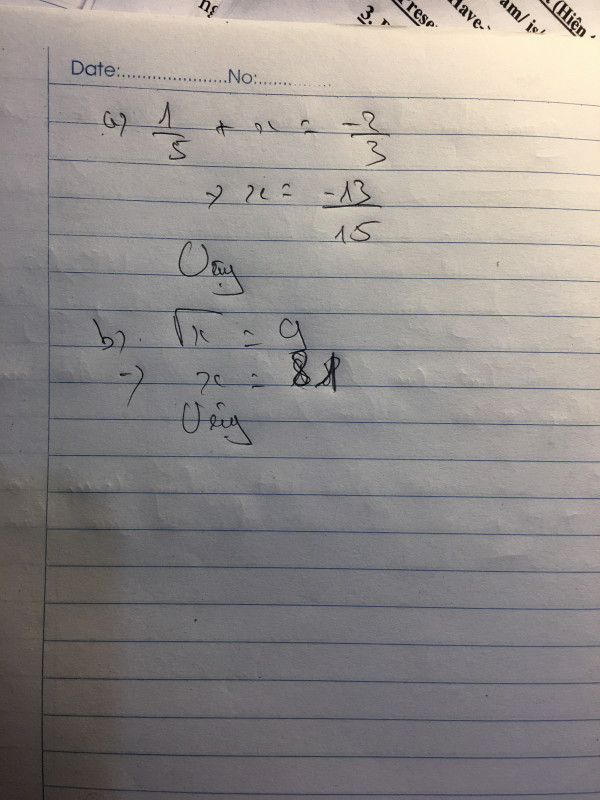 ng
3.
Prese
Have
am/ is/
(Hiên
Date:......................No:................
a) 1/5 + x = -2/3
→ x = -13/15
Vậy
b). √x = 9
→ x = 81
Vậy